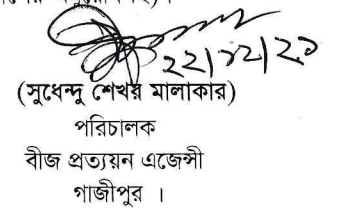 ২২/১২/২০
(সুধেন্দু শেখর মালাকার)
পরিচালক
বীজ প্রত্যয়ন এজেন্সী
গাজীপুর ।